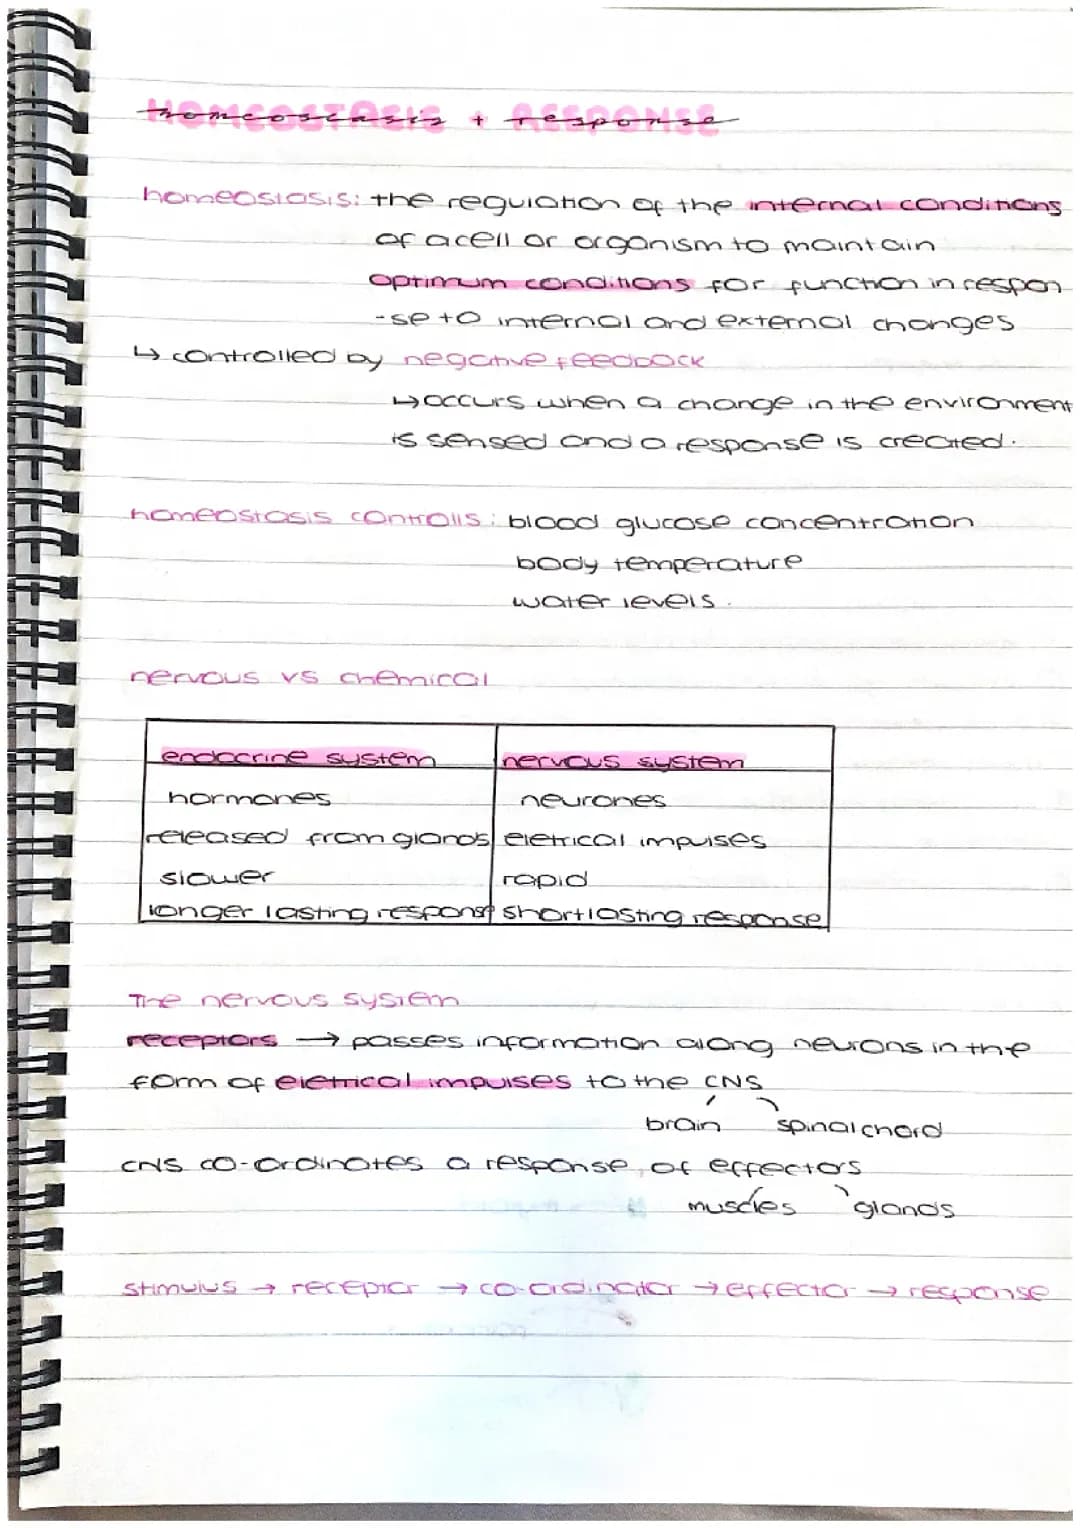 Homeostasis + response
homeostasis: the regulation of the internal conditions
of a cell or organism to maintain
optimum conditions for function in respon
-se to internal and external changes
↳ controlled by negative feedback
↳ occurs when a change in the environment
is sensed and a response is created.
homeostasis controlls: blood glucose concentration
body temperature
water levels.
nervous vs chemical
endocrine system nervous system
hormones neurones
released from glands eletrical impulses
slower rapid
longer lasting response short lasting response
The nervous system
receptors → passes information along neurons in the
form of eletrical impulses to the CNS
brain spinal chord
CNS co-ordinates a response of effectors
muscles glands
stimulus → receptor → co-ordinator → effector → response